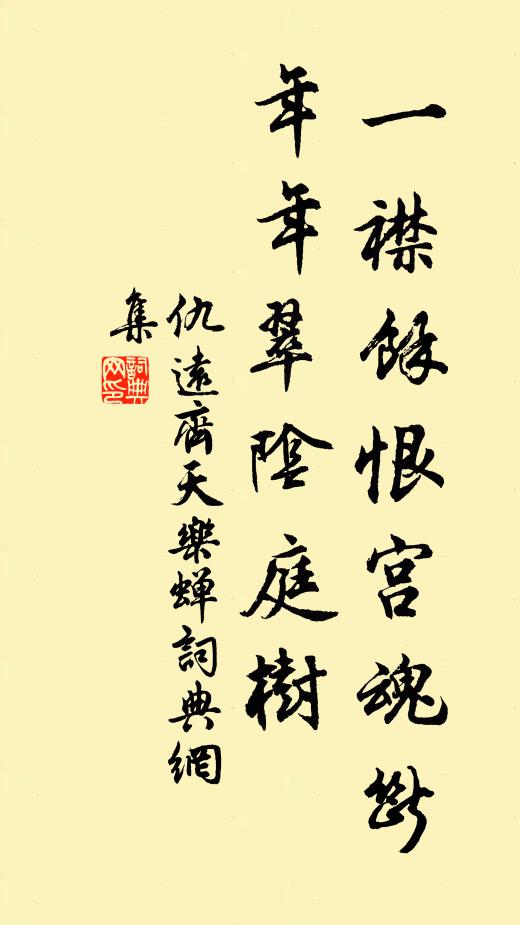 一襟餘恨宮魂斷
年年翠陰庭樹
仇遠齊天樂蝉詞典網
集
詞典
网印